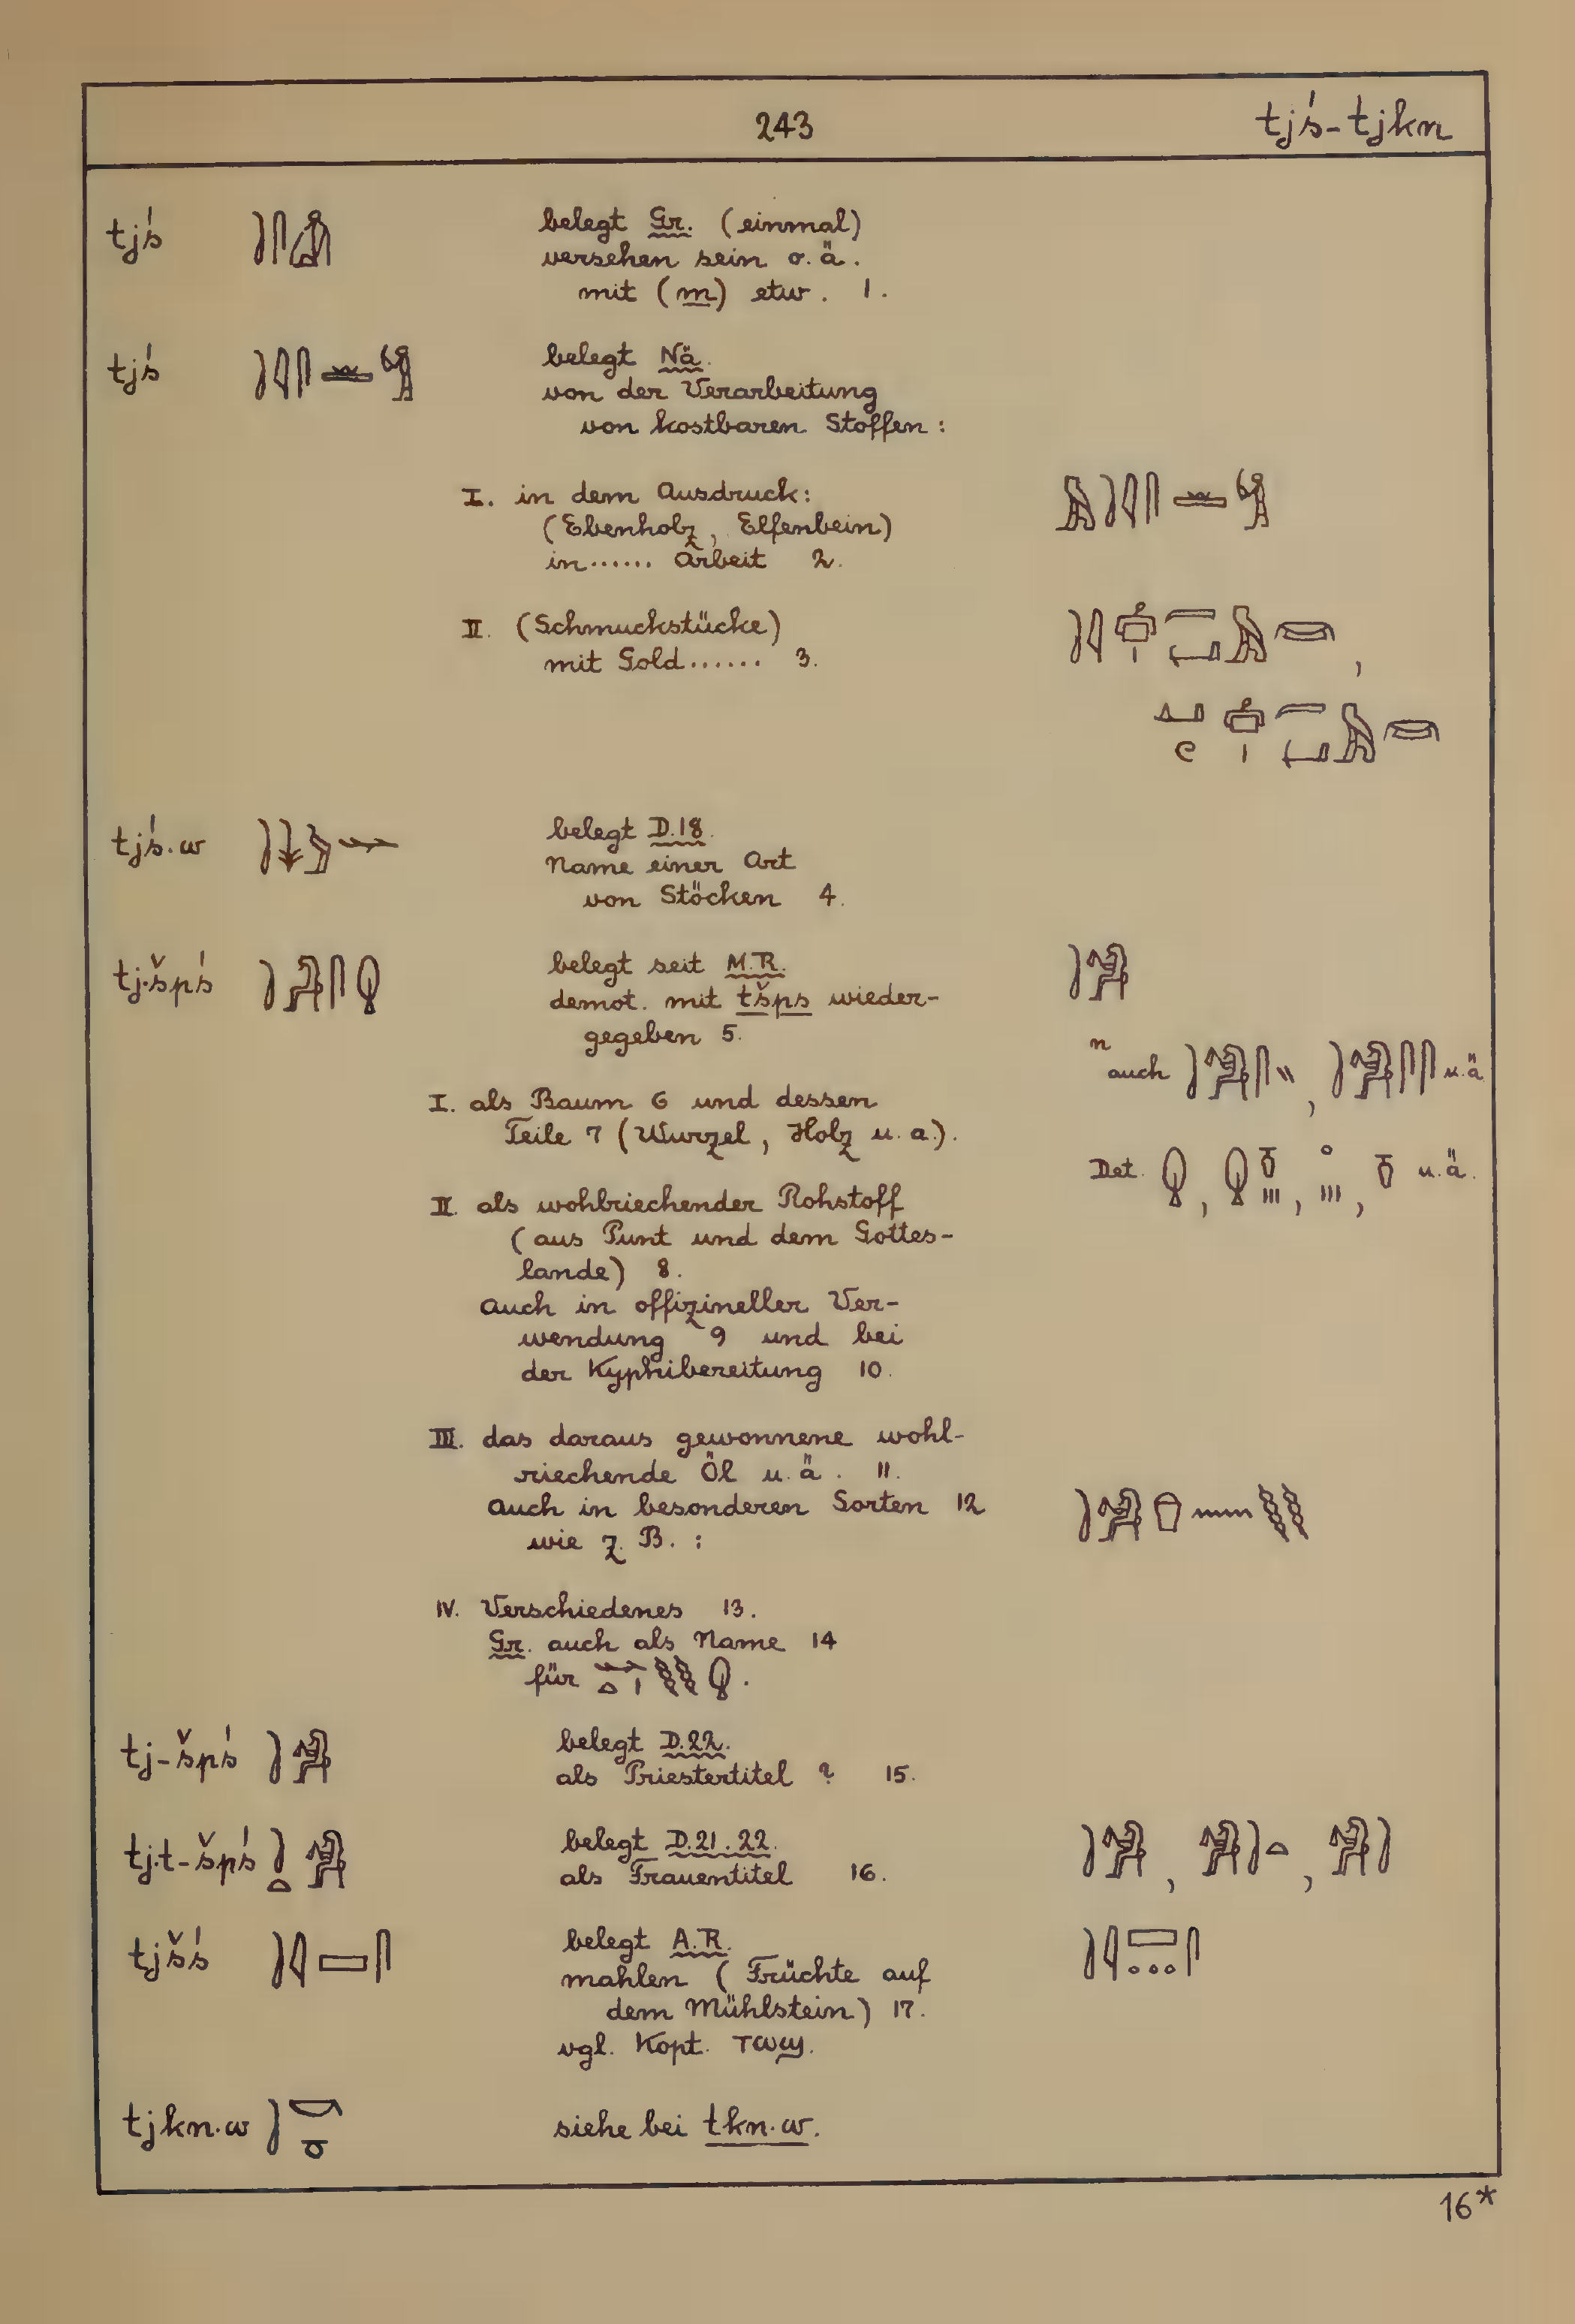 243
tjś-tjkn
tjś
belegt Gr. (einmal)
versehen sein o. ä.
mit (m) etw. 1.
tjś
belegt Nä.
von der Verarbeitung
von kostbaren Stoffen:
I. in dem Ausdruck:
(Ebenholz, Elfenbein)
in...... Arbeit 2.
II. (Schmuckstücke)
mit Gold...... 3.
tjś.w
belegt D.18.
Name einer Art
von Stöcken 4.
tj.špś
belegt seit M.R.
demot. mit tšps wieder-
gegeben 5.
n auch u.ä
I. als Baum 6 und dessen
Teile 7 (Wurzel, Holz u. a.).
Det. u.ä.
II. als wohlriechender Rohstoff
(aus Punt und dem Gottes-
lande) 8.
auch in offizineller Ver-
wendung 9 und bei
der Kyphibereitung 10.
III. das daraus gewonnene wohl-
riechende Öl u. ä. 11.
auch in besonderen Sorten 12
wie z. B. :
IV. Verschiedenes 13.
Gr. auch als Name 14
für
tj-špś
belegt D.22.
als Priestertitel ? 15.
tj.t-špś
belegt D.21.22.
als Frauentitel 16.
tjšś
belegt A.R.
mahlen (Früchte auf
dem Mühlstein) 17.
vgl. Kopt. ⲧⲱϣ.
tjkn.w
siehe bei tkn.w.
16*